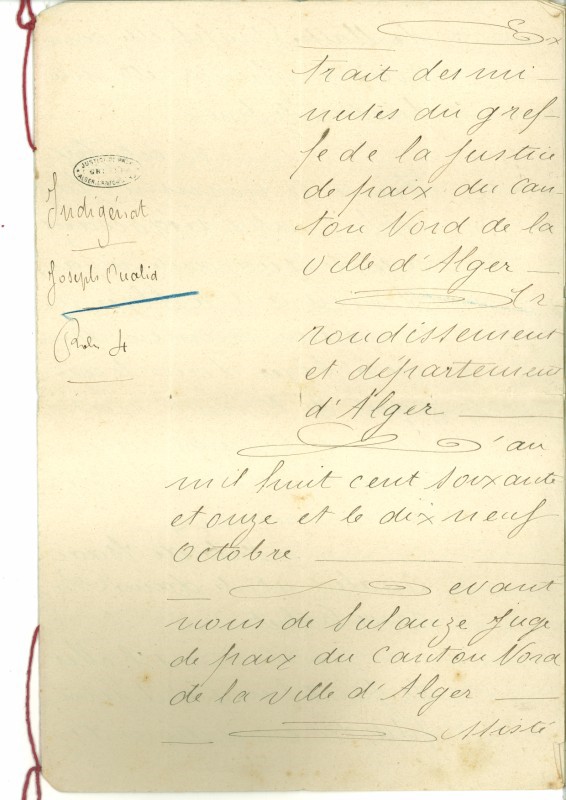 Ex
trait des mi-
nutes du gref-
fe de la Justice
de paix du Can-
ton Nord de la
ville d'Alger
Ar
rondissement
et département
d'Alger
L'an
mil huit cent soixante
et onze et le dix neuf
Octobre
evant
nous de Sulauze Juge
de paix du Canton Nord
de la ville d'Alger
Assisté
JUSTICE DE PAIX
ALGER
Indigénat
Joseph Oualid